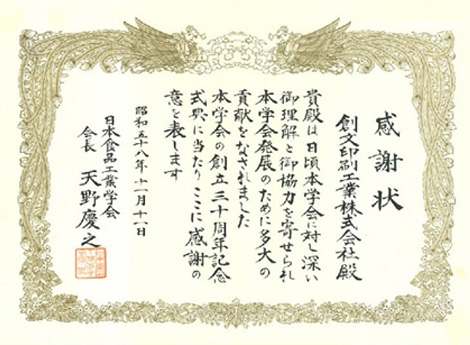 感謝状
創文印刷工業株式会社殿
貴殿は日頃本学会に対し深い
御理解と御協力を寄せられ
本学会発展のために多大の
貢献をなされました
本学会の創立三十周年記念
式典に当たりここに感謝の
意を表します
昭和五十八年十一月十一日
日本食品工業学会
会長 天野慶之